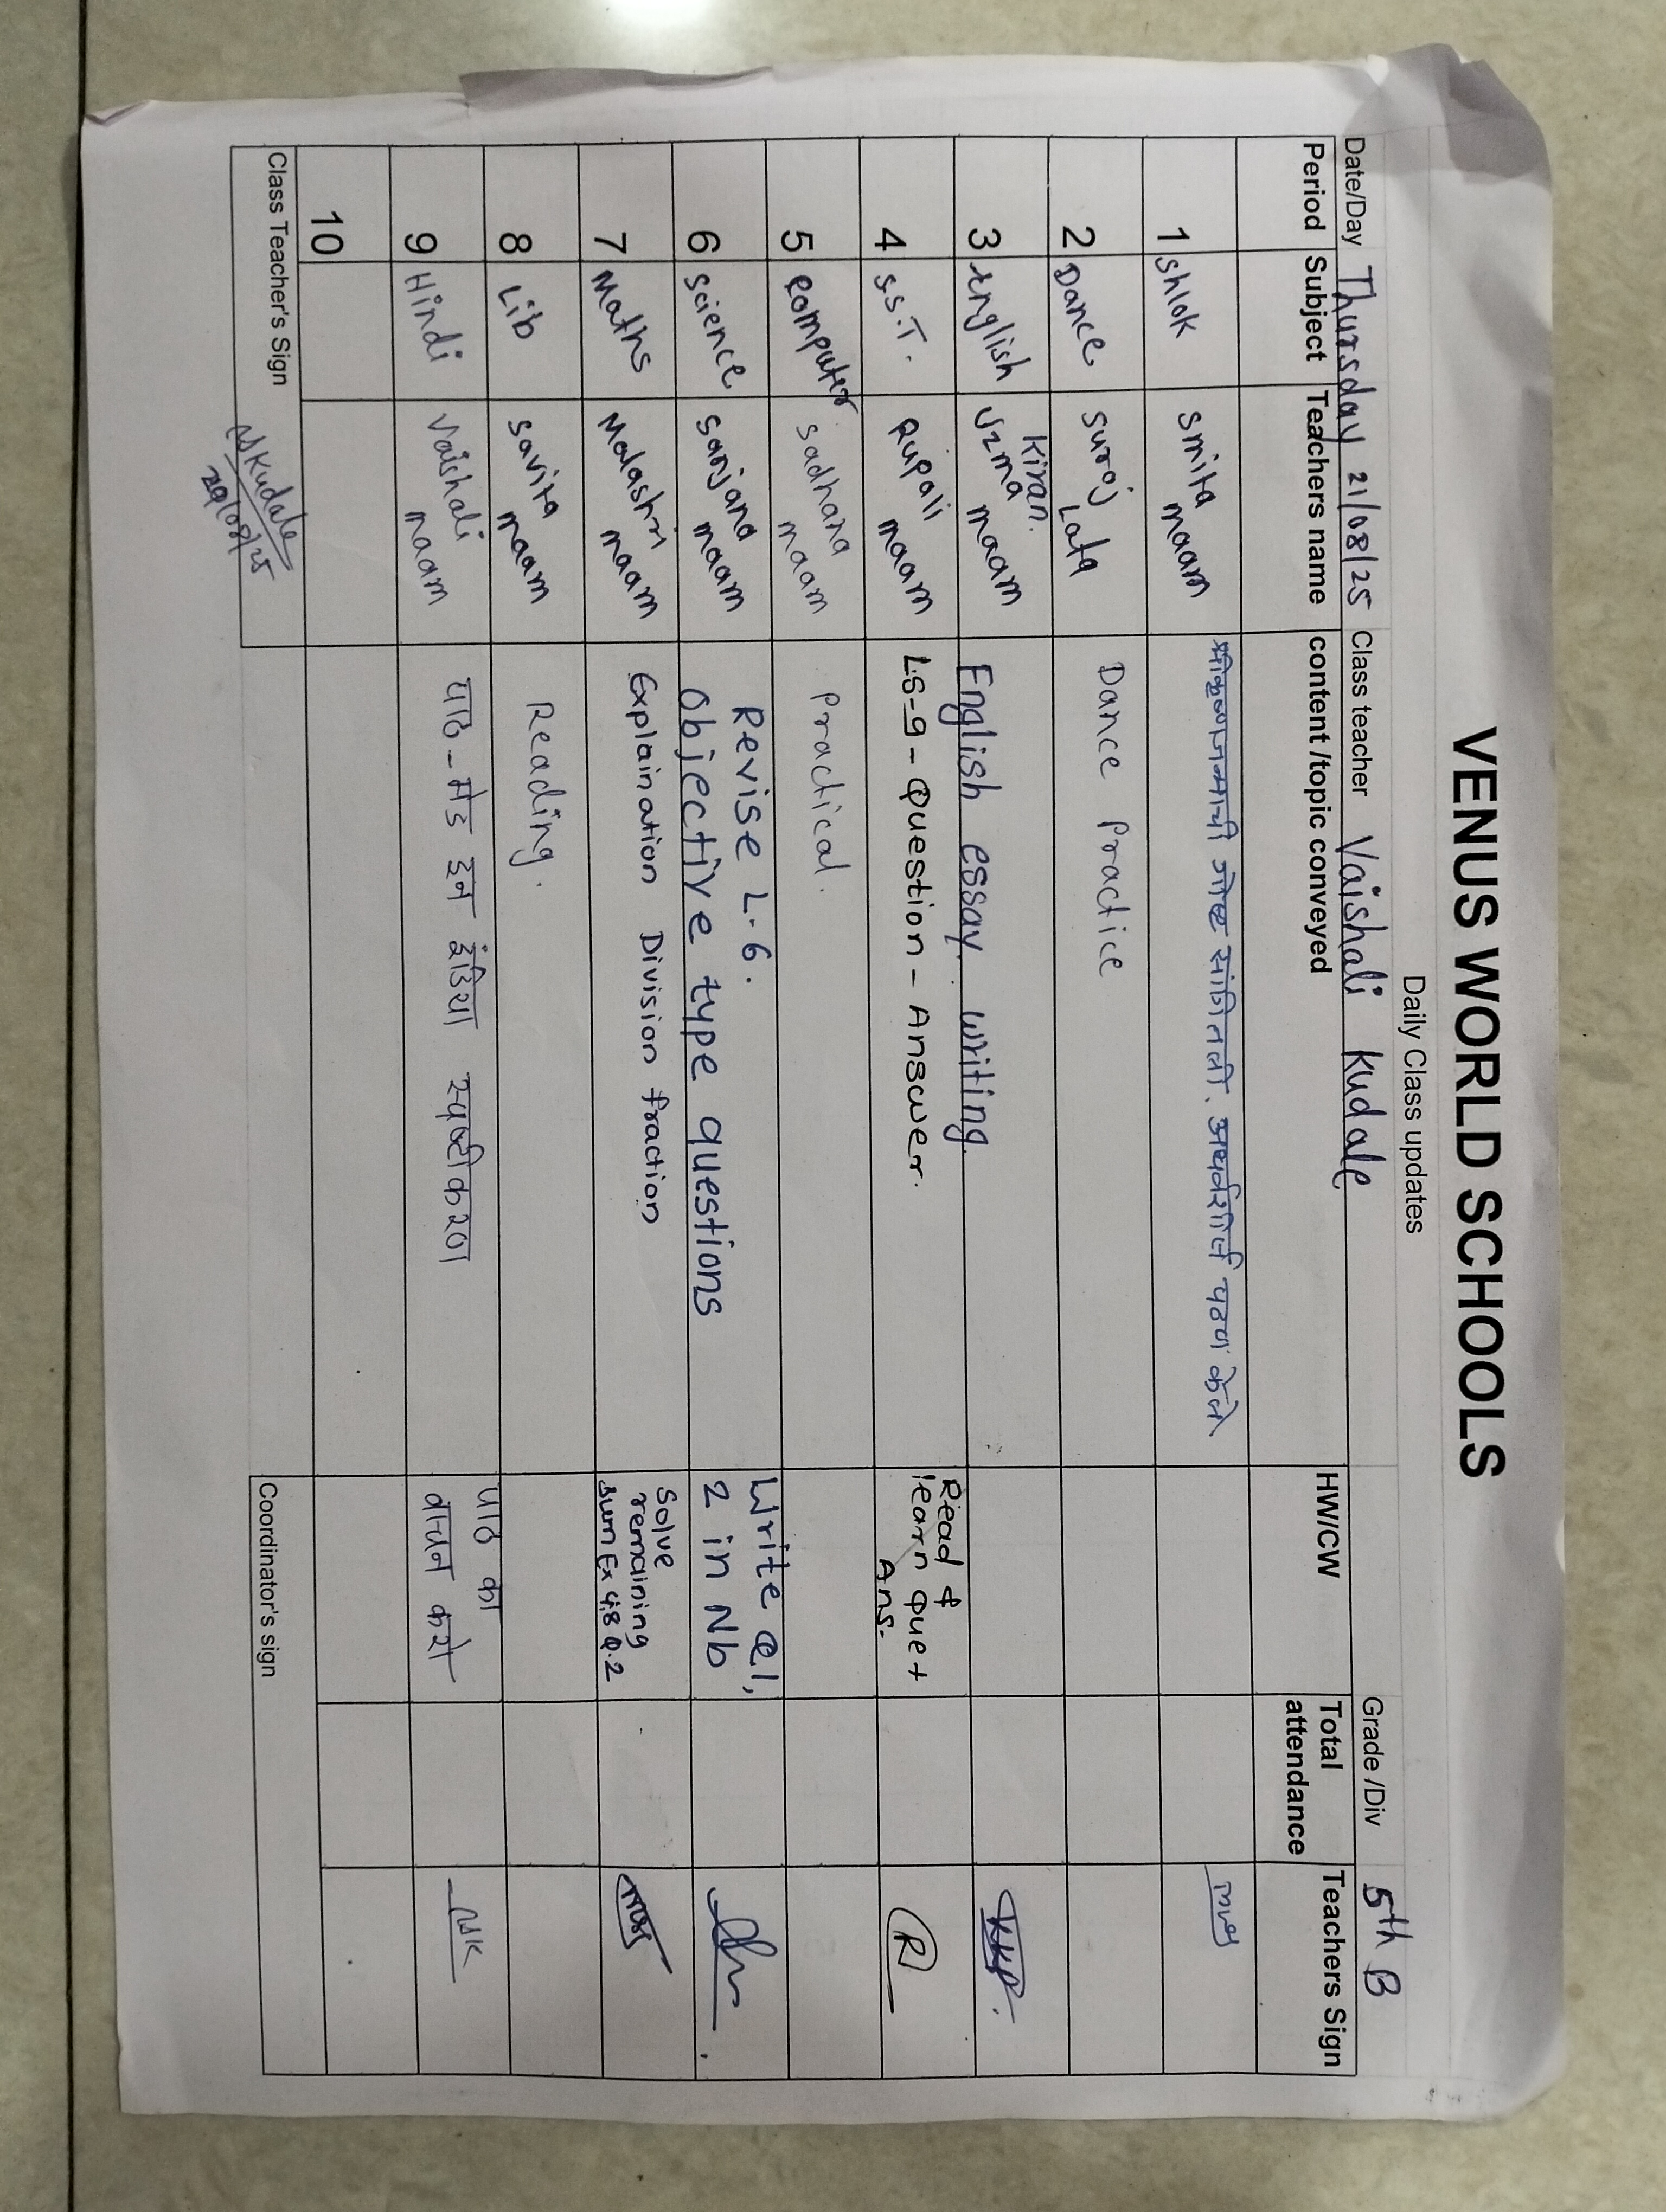 VENUS WORLD SCHOOLS
Daily Class updates
Date/Day Thursday 21/08/25 Class teacher Vaishali Kudale Grade /Div 5th B
Period Subject Teachers name content /topic conveyed HW/CW Total attendance Teachers Sign
1 Shlok Smita maam श्रीकृष्णजन्माची गोष्ट सांगितली. अथर्वशीर्ष पठण केले
2 Dance Suraj Lata Dance Practice
3 English Kiran. Uzma maam English essay writing.
4 S.S.T. Rupali maam L.S-9 - Question - Answer. Read & learn Que + Ans. R
5 Computer Sadhana maam Practical.
6 Science Sanjana maam Revise L-6. Objective type questions Write Q1, 2 in Nb
7 Maths Malashri maam Explaination Division fraction Solve remaining sum Ex 4.8 Q.2
8 Lib Savita maam Reading.
9 Hindi Vaishali maam पाठ - मेड इन इंडिया स्पष्टीकरण पाठ का वाचन करो
10
Class Teacher's Sign Coordinator's sign